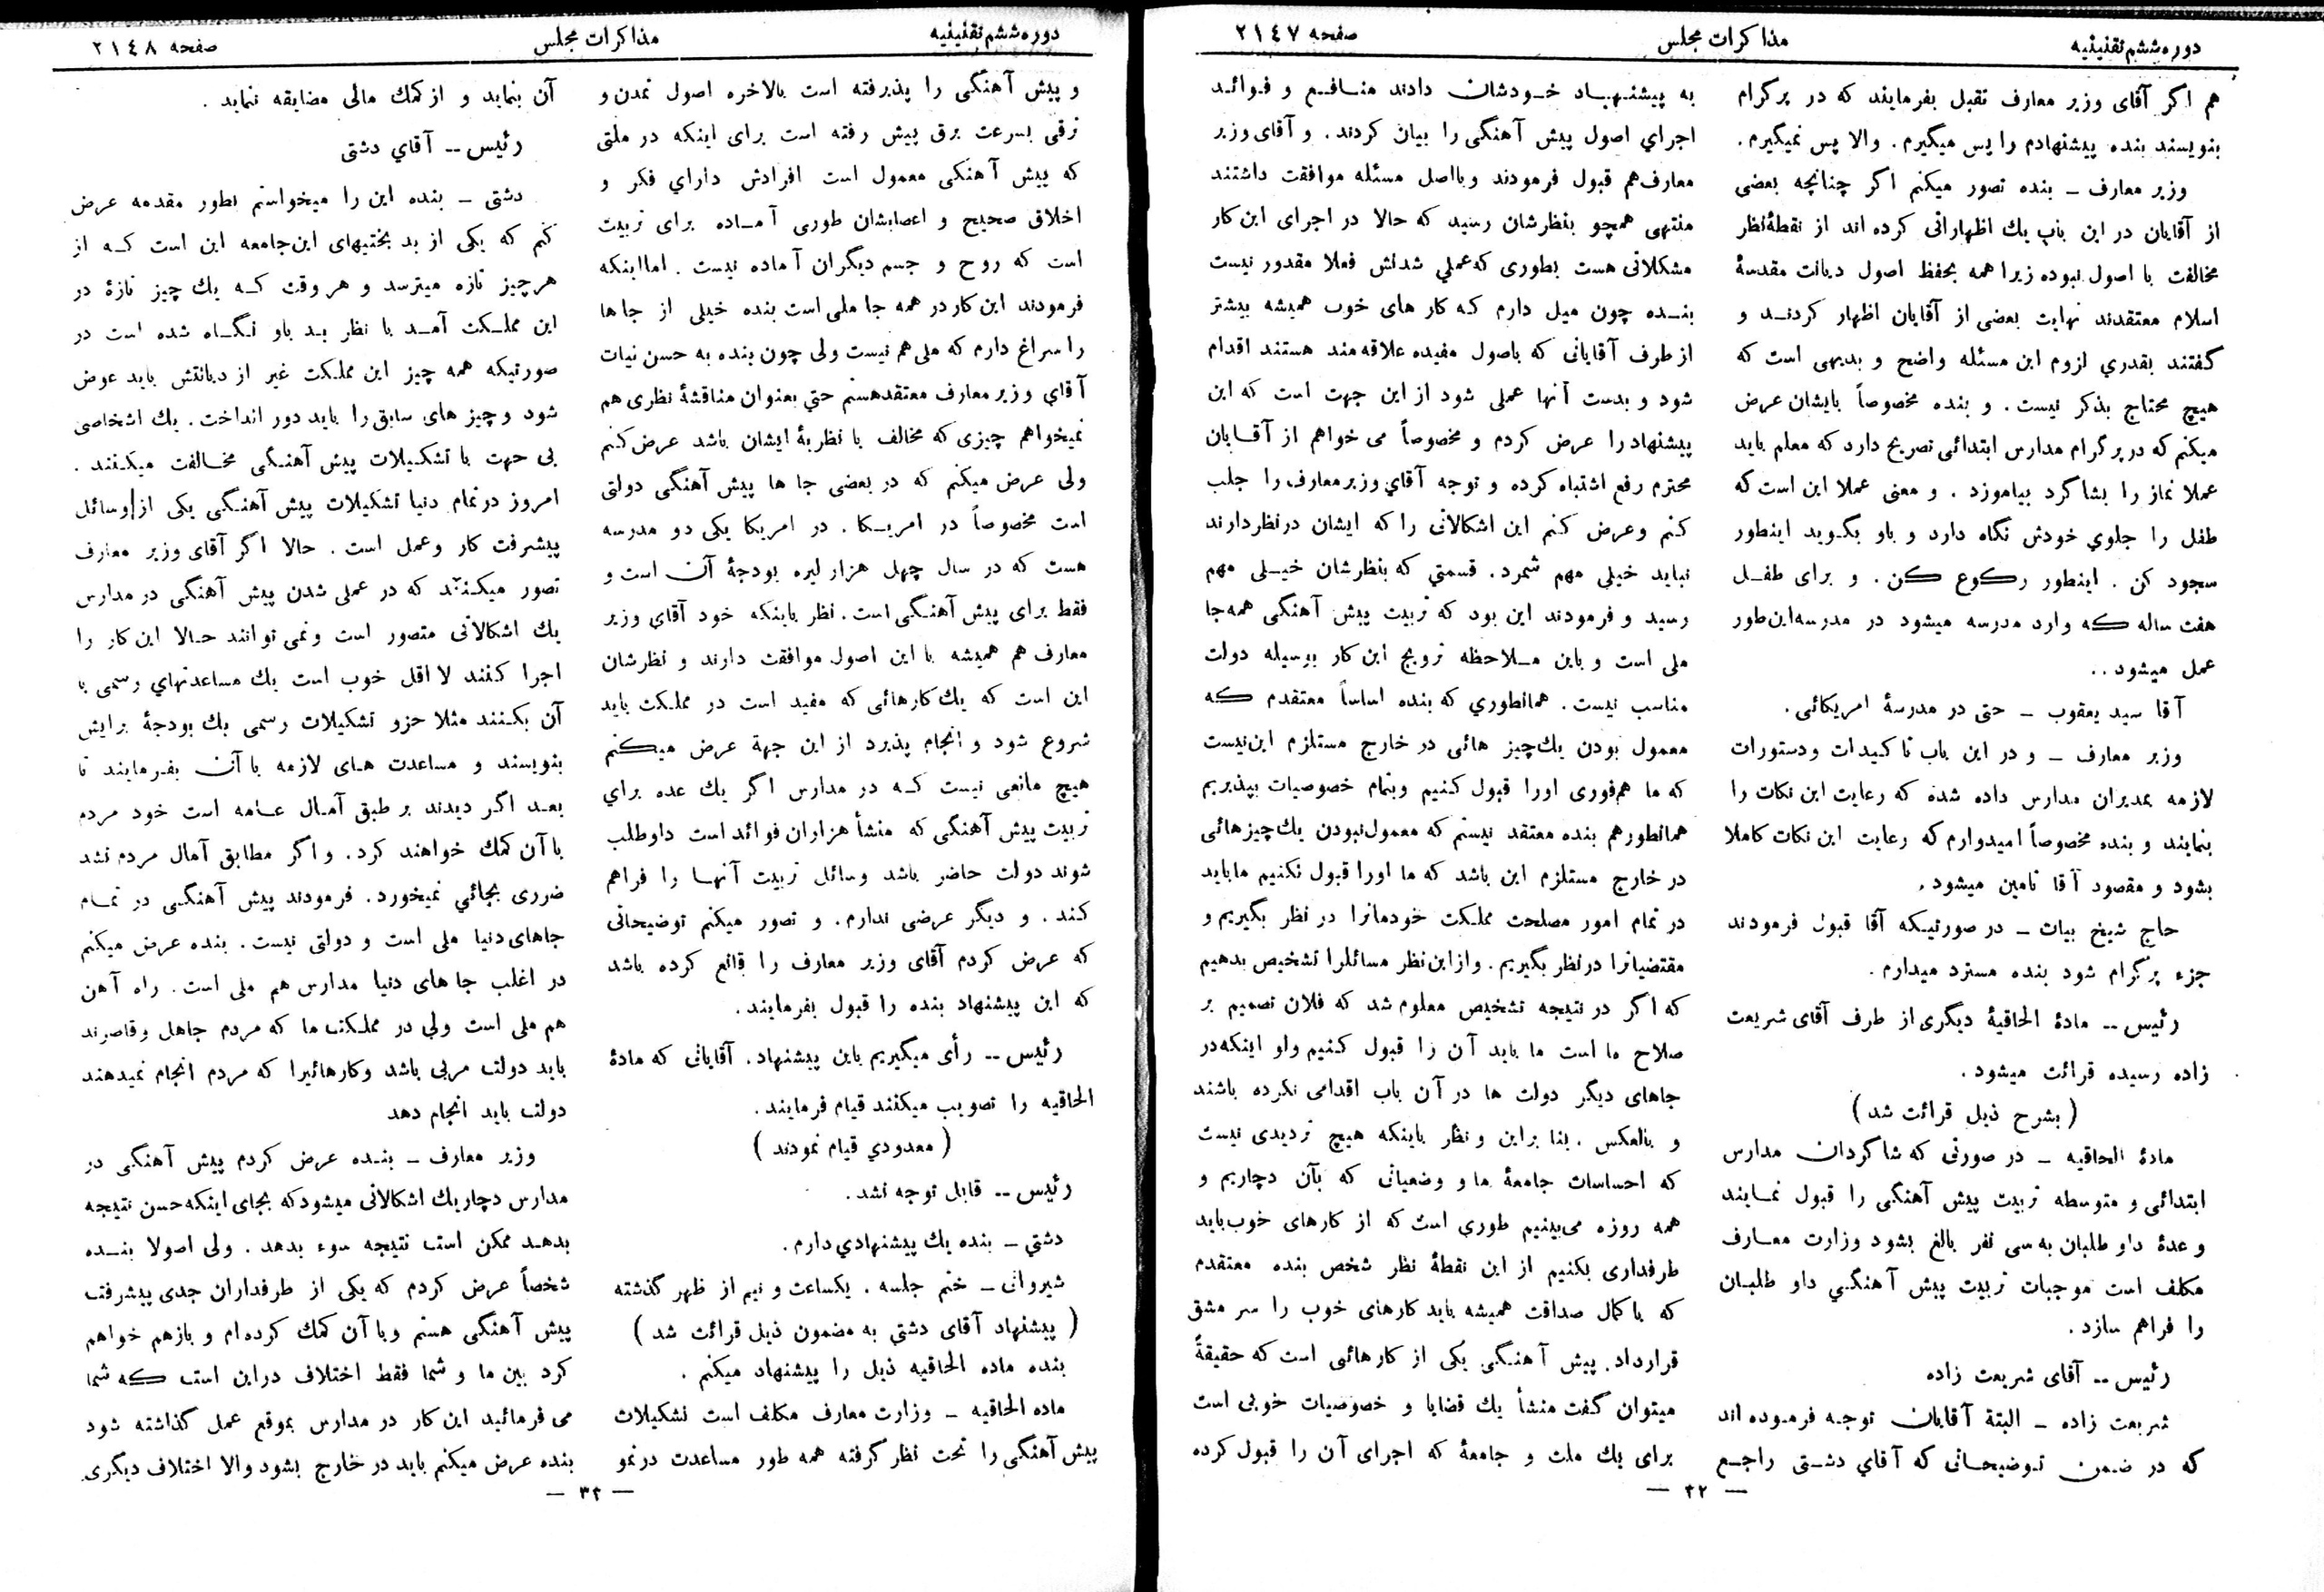 دوره ششم تقنینیه
مذاکرات مجلس
صفحه ۲۱٤۷
هم اگر آقای وزیر معارف تقبل بفرمایند که در پرگرام
بنویسند بنده پیشنهادم را پس میگیرم. والا پس نمیگیرم.
وزیر معارف ـ بنده تصور میکنم اگر چنانچه بعضی
از آقایان در این باب یك اظهاراتی کرده اند از نقطهٔ نظر
مخالفت با اصول نبوده زیرا همه بحفظ اصول دیانت مقدسهٔ
اسلام معتقدند نهایت بعضی از آقایان اظهار کردنـد و
گفتند بقدري لزوم این مسئله واضح و بدیهی است که
هیچ محتاج بذکر نیست. و بنده مخصوصاً بایشان عرض
میکنم که در پرگرام مدارس ابتدائی تصریح دارد که معلم باید
عملا نماز را بشاگرد بیاموزد . و معنی عملا این است که
طفل را جلوي خودش نگاه دارد و باو بگوید اینطور
سجود کن . اینطور رکوع کن. و برای طفـل
هفت ساله که وارد مدرسه میشود در مدرسه این طور
عمل میشود..
آقا سید یعقوب ـ حتی در مدرسهٔ امریکائی.
وزیر معارف ـ و در این باب تاکیدات و دستورات
لازمه بمدیران مدارس داده شده که رعایت این نکات را
بنمایند و بنده مخصوصاً امیدوارم که رعایت این نکات کاملا
بشود و مقصود آقا تامین میشود.
حاج شیخ بیات ـ در صورتیـکه آقا قبول فرمودند
جزء پرگرام شود بنده مسترد میدارم .
رئیس -- مادهٔ الحاقیهٔ دیگری از طرف آقای شریعت
زاده رسیده قرائت میشود .
( بشرح ذیل قرائت شد )
مادهٔ الحاقیه ـ در صورتی که شاگردان مدارس
ابتدائی و متوسطه تربیت پیش آهنگی را قبول نمـایند
و عدهٔ داو طلبان به سی نفر بالغ بشود وزارت معـارف
مکلف است موجبات تربیت پیش آهنگـي داو طلبـان
را فراهم سازد .
رئیس -- آقای شریعت زاده
شریعت زاده ـ البتة آقایان توجـه فرمـوده اند
که در ضـمن تـوضیحـاتی که آقاي دشـتی راجـع
به پیشنهـاد خـودشان دادند منـافـع و فـوائـد
اجراي اصول پیش آهنگی را بیان کردند. و آقای وزیر
معارف هم قبول فرمودند و با اصل مسئله موافقت داشتند
منتهی همچو بنظرشان رسید که حالا در اجرای این کار
مشکلاتی هست بطوری که عملي شدنش فعلا مقدور نیست
بنـده چون میل دارم کـه کار های خوب همیشه بیشتر
از طرف آقایانی که باصول مفیده علاقه مند هستند اقدام
شود و بدست آنها عملی شود از این جهت است که این
پیشنهاد را عرض کردم و مخصوصاً می خواهم از آقـایان
محترم رفع اشتباه کرده و توجه آقاي وزیر معارف را جلب
کنم و عرض کنم این اشکالاتی را که ایشان در نظر دارند
نباید خیلی مهم شمرد. قسمتي که بنظرشان خیـلی مهم
رسید و فرمودند این بود که تربیت پیش آهنگی همه جا
ملی است و باین مـلاحظه ترویج این کار بوسیله دولت
مناسب نیست. همانطوري که بنده اساساً معتقدم که
معمول بودن یك چیز هائی در خارج مستلزم این نیست
که ما هم فوری اورا قبول کنیم و بتمام خصوصیات بپذیریم
همانطور هم بنده معتقد نیستم که معمول نبودن یك چیز هائی
در خارج مستلزم این باشد که ما اورا قبول نکنیم ما باید
در تمام امور مصلحت مملکت خودمانرا در نظر بگیریم و
مقتضیاترا در نظر بگیریم. و از این نظر مسائلرا تشخیص بدهیم
که اگر در نتیجه تشخیص معلوم شد که فلان تصمیم بر
صلاح ما است ما باید آن را قبول کنیم ولو اینکه در
جاهای دیگر دولت ها در آن باب اقدامی نکرده باشند
و بالعکس . بنا براین و نظر باینکه هیچ تردیدی نیست
که احساسات جامعهٔ ما و وضعیاتی که بآن دچاریم و
همه روزه می بینیم طوری است که از کارهای خوب باید
طرفداری بکنیم از این نقطهٔ نظر شخص بنده معتقدم
که با کمال صداقت همیشه باید کارهای خوب را سر مشق
قرارداد. پیش آهنگی یکی از کارهائی است که حقیقةً
میتوان گفت منشأ یك قضایا و خصوصیات خوبی است
برای یك ملت و جامعهٔ که اجرای آن را قبول کرده
— ۳۲ —
دوره ششم تقنینیه
مذاکرات مجلس
صفحه ۲۱٤۸
و پیش آهنگی را پذیرفته است بالاخره اصول تمدن و
ترقی بسرعت برق پیش رفته است برای اینکه در ملتی
که پیش آهنگی معمول است افرادش داراي فکر و
اخلاق صحیح و اعصابشان طوری آمـاده برای تربیت
است که روح و جسم دیگران آماده نیست . اما اینکه
فرمودند این کار در همه جا ملی است بنده خیلی از جا ها
را سراغ دارم که ملی هم نیست ولی چون بنده به حسن نیات
آقاي وزیر معارف معتقد هستم حتي بعنوان مناقشهٔ نظری هم
نمیخواهم چیزی که مخالف با نظریهٔ ایشان باشد عرض کنم
ولی عرض میکنم که در بعضی جا ها پیش آهنگی دولتی
است مخصوصاً در امریـکا . در امریکا یکی دو مدرسه
هست که در سال چهل هزار لیره بودجهٔ آن است و
فقط برای پیش آهنگی است. نظر باینکه خود آقاي وزیر
معارف هم همیشه با این اصول موافقت دارند و نظرشان
این است که یك کارهائی که مفید است در مملکت باید
شروع شود و انجام پذیرد از این جهة عرض میکنم
هیچ مانعی نیست کـه در مدارس اگر یك عده براي
تربیت پیش آهنگی که منشأ هزاران فوائد است داوطلب
شوند دولت حاضر باشد وسائل تربیت آنهـا را فراهم
کند . و دیگر عرضی ندارم. و تصور میکنم توضیحاتی
که عرض کردم آقای وزیر معارف را قانع کرده باشد
که این پیشنهاد بنده را قبول بفرمایند.
رئیس -- رأی میگیریم باین پیشنهاد. آقایانی که مادهٔ
الحاقیه را تصویب میکنند قیام فرمایند.
( معدودي قیام نمودند )
رئیس -- قابل توجه نشد.
دشتي ـ بنده یك پیشنهادي دارم.
شیروانی ـ ختم جلسه . یکساعت و نیم از ظهر گذشته
( پیشنهاد آقای دشتی به مضمون ذیل قرائت شد )
بنده ماده الحاقیه ذیل را پیشنهاد میکنم .
ماده الحاقیه ـ وزارت معارف مکلف است تشکیلات
پیش آهنگی را تحت نظر گرفته همه طور مساعدت در نمو
آن بنماید و از کمك مالی مضایقه ننماید .
رئیس -- آقاي دشتی
دشتی ـ بنده این را میخواستم بطور مقدمه عرض
کنم که یکی از بد بختیهای این جامعه این است کـه از
هر چیز تازه میترسد و هر وقت کـه یك چیز تازهٔ در
این مملـکت آمـد با نظر بـد باو نگـاه شده است در
صورتیکه همه چیز این مملکت غیر از دیانتش باید عوض
شود و چیز های سابق را باید دور انداخت. یك اشخاصی
بی جهت با تشکیلات پیش آهنـگی مخـالفت میکـنند .
امروز در تمام دنیا تشکیلات پیش آهنـگی یکی از وسائل
پیشرفت کار و عمل است . حالا اگر آقای وزیر معارف
تصور میکـنند که در عملی شدن پیش آهنگی در مدارس
یك اشکالاتی متصور است و نمی توانند حـالا این کار را
اجرا کـنند لا اقل خوب است یك مساعدتهاي رسمی با
آن بکـنند مثلا جزو تشکیلات رسمی یك بودجهٔ برایش
بنویسند و مساعدت هـای لازمه با آن بفـرمایند تا
بعـد اگر دیدند بر طبق آمـال عـامه است خود مردم
با آن کمك خواهند کرد. و اگر مطابق آمال مردم نشد
ضرری بجائي نمیخورد. فرمودند پیش آهنگـی در تمـام
جاهای دنیا ملی است و دولتی نیست. بنده عرض میکنم
در اغلب جا های دنیا مدارس هم ملی است. راه آهن
هم ملی است ولی در مملکت ما که مردم جاهل و قاصرند
باید دولت مربی باشد و کارهائیرا که مردم انجام نمیدهند
دولت باید انجام دهد
وزیر معارف ـ بنـده عرض کردم پیش آهنگی در
مدارس دچار یك اشکالاتی میشود که بجای اینکه حسن نتیجه
بدهـد ممکن است نتیجه سوء بدهد . ولی اصولا بنـده
شخصاً عرض کردم که یکی از طرفداران جدی پیشرفت
پیش آهنگی هستم و با آن کمك کرده ام و باز هم خواهم
کرد بین ما و شما فقط اختلاف در این است که شما
می فرمائید این کار در مدارس بموقع عمل گذاشته شود
بنده عرض میکنم باید در خارج بشود والا اختلاف دیگری
— ۳۳ —